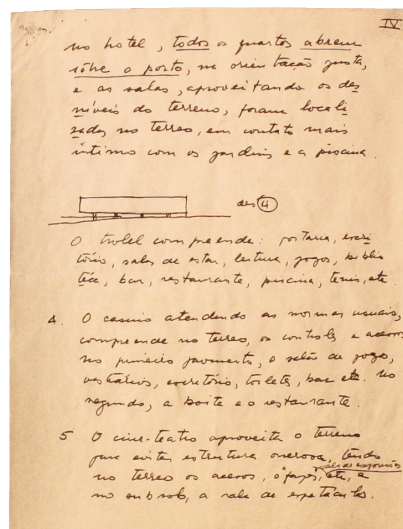 IV
no hotel, todos os quartos abrem
sôbre o porto, na orientação justa,
e as salas, aproveitando os des
níveis do terreno, foram locali
zadas no terreo, em contato mais
íntimo com os jardins e a piscina.
des 4
O hotel compreende: portaria, escri
tório, salas de estar, leitura, jogos, biblio
téca, bar, restaurante, piscina, tenis, etc.
4. O casino atendendo as normas usuais,
compreende no terreo, os controles e acessos
no primeiro pavimento, o salão de jogo,
vestiários, escritório, toiletes, bar etc. no
segundo, a boite e o restaurante.
5 O cine-teatro aproveita o terreno
para evitar estrutura onerosa, tendo
no terreo os acessos, o "foyer", sala de exposições, etc, e
no subsolo, a sala de espetáculos.